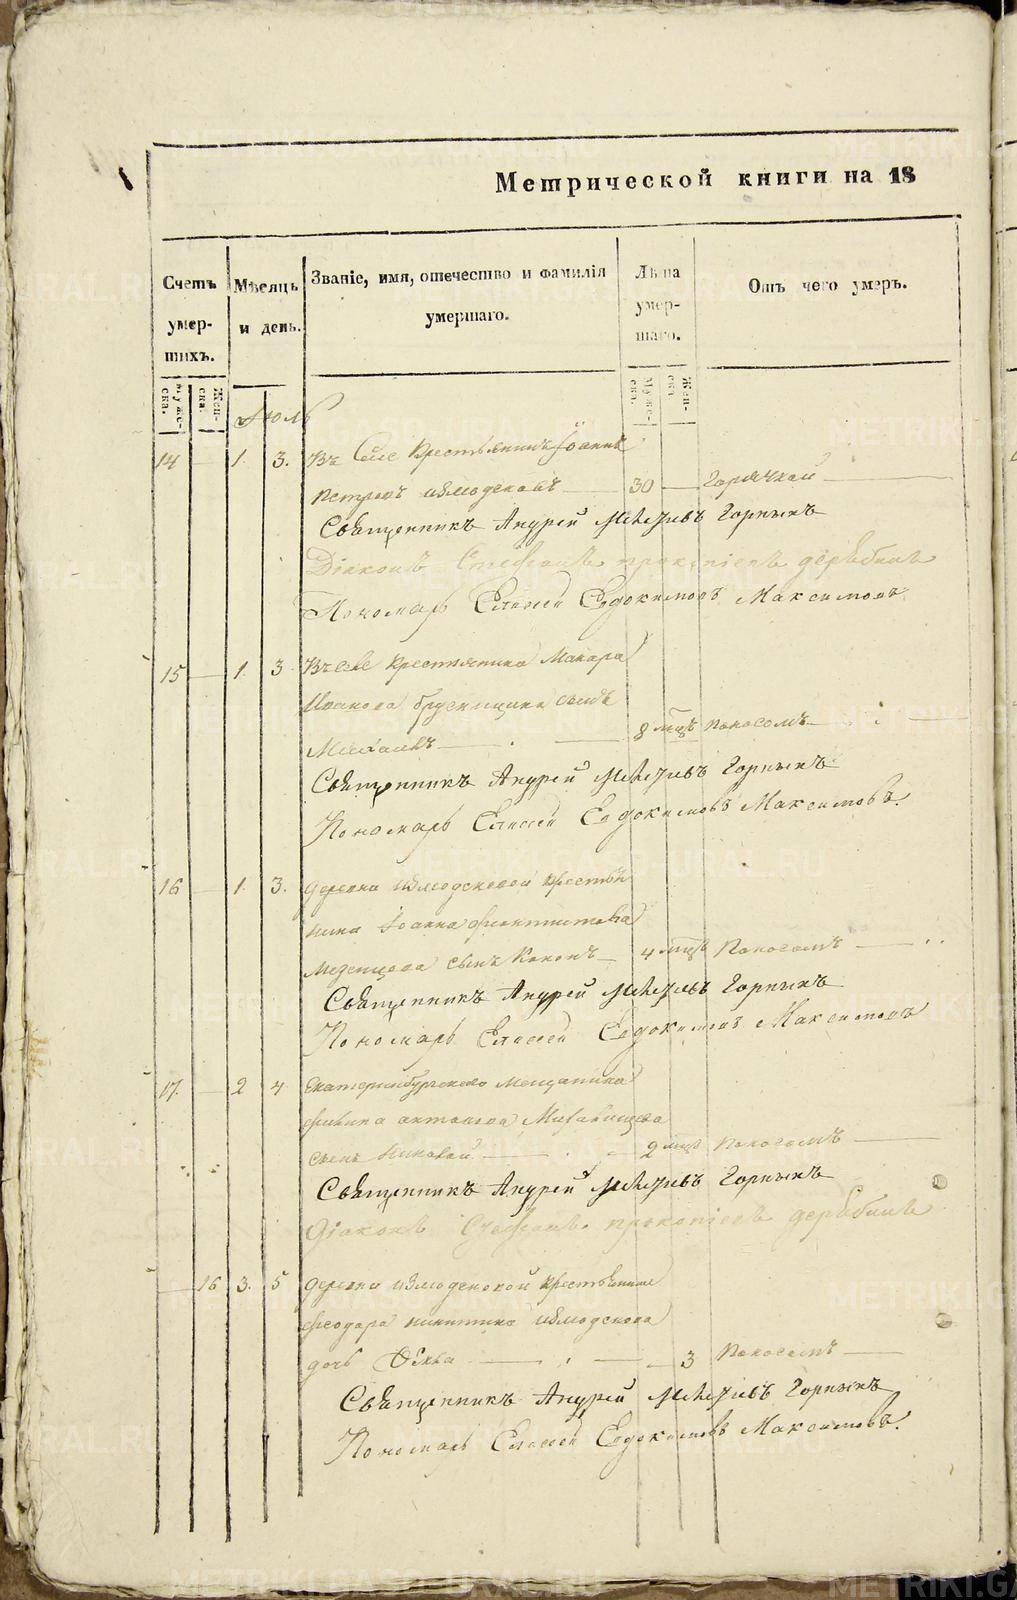 Метрической книги на 18
Счетъ умер-шихъ.
Муже-ска.
Жен-ска.
Мѣсяцъ и день.
Званіе, имя, отечество и фамилія умершаго.
Лѣта умер-шаго.
Муже-ска.
Жен-ска
Отъ чего умеръ.
Іюль
14 1. 3. Въ Селе Крестьянинъ Іоаннъ
Петровъ 30 Горячкой
Священникъ Андрей Горныхъ
Діяконъ Стефанъ прокопіевъ дерябинъ
Пономарь Елисей Евдокимовъ Максимовъ
15 1. 3 Въ селе Крестьянина Макара
Иванова Брусницина сынъ
Михаилъ 8 мцъ Поносомъ
Священникъ Андрей Горныхъ
Пономарь Елисей Евдокимовъ Максимовъ.
16 1. 3. Деревни Измоденовой Крестья
нина Іоанна феоктистова
Меденцова сынъ Кононъ 4 мцъ Поносомъ
Священникъ Андрей Горныхъ
Пономарь Елисей Евдокимовъ Максимовъ
17. 2 4 Екатеринбургскаго Мещанина
антонова
сынъ Николай 2 мцъ Поносомъ
Священникъ Андрей Горныхъ
Діаконъ Стефанъ прокопіевъ дерябинъ
16 3. 5 Деревни Измоденовой Крестьянина
феодора никитина Измоденова
дочь Фекла 3 Поносомъ
Священникъ Андрей Горныхъ
Пономарь Елисей Евдокимовъ Максимовъ.